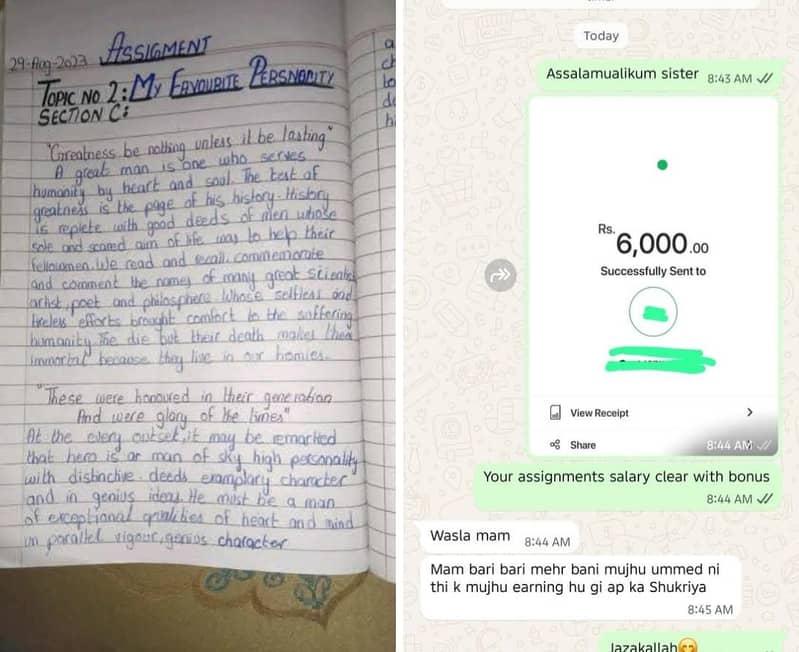 29-Aug-2023 ASSIGMENT
TOPIC NO 2: MY FAVOURITE PERSNONITY
SECTION C:
"Greatness be nothing unless it be lasting"
A great man is one who serves
humanity by heart and soul. The test of
greatness is the page of his history. History
is replete with good deeds of men whose
sole and scared aim of life was to help their
fellowmen. We read and recall, commemorate
and comment the names of many great scientes
artist, poet and philosphers whose selfless and
tireless efforts brought comfort to the suffering
humanity. The die but their death makes them
immortal because they live in our homies.
"These were honoured in their generation
And were glory of the times"
At the every outset, it may be remarked
that hero is ar man of sky high personality
with distinctive deeds examplary character
and in genius ideas. He must be a man
of exceptional qualities of heart and mind
un parallel vigour, genios character
Today
Assalamualikum sister 8:43 AM
Rs. 6,000.00
Successfully Sent to
View Receipt
Share 8:44 AM
Your assignments salary clear with bonus
8:44 AM
Wasla mam 8:44 AM
Mam bari bari mehr bani mujhu ummed ni
thi k mujhu earning hu gi ap ka Shukriya
8:45 AM
Jazakallah😊